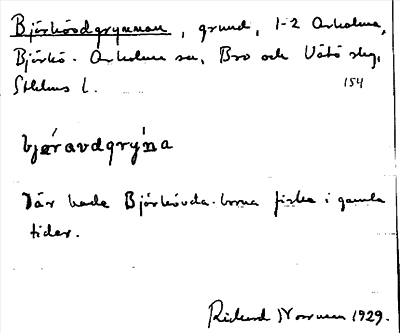 Björkövdgrynnan, grund, 1-2 Arholma,
Björkö - Arholma sn, Bro och Vätö slg,
Sthlms l. 154
bjǽravdgrýna
Där hade Björkövda-borna fiske i gamla
tider.
Rickard Norrman 1929.